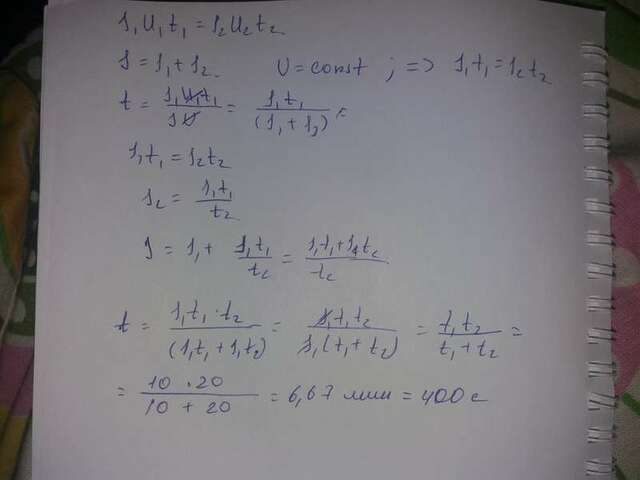 I₁U₁t₁ = I₂U₂t₂
I = I₁ + I₂ U = const ; => I₁t₁ = I₂t₂
t = I₁U₁t₁ / IU = I₁t₁ / (I₁ + I₂) =
I₁t₁ = I₂t₂
I₂ = I₁t₁ / t₂
I = I₁ + I₁t₁ / t₂ = I₁t₁ + I₁t₂ / t₂
t = I₁t₁ · t₂ / (I₁t₁ + I₁t₂) = I₁t₁t₂ / I₁(t₁ + t₂) = t₁t₂ / t₁ + t₂ =
= 10 · 20 / 10 + 20 = 6,67 мин = 400 с